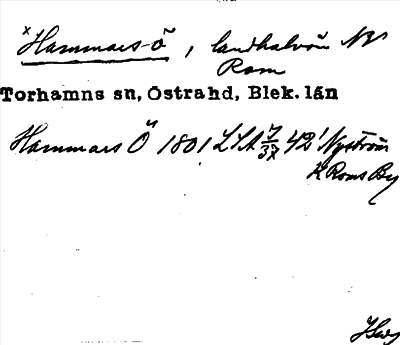 x Hammars-ö, landhalvön NV
Rom
Torhamns sn, Östrahd, Blek. län
Hammars Ö 1801 LSA 7/37 42' Nyström
Roms By